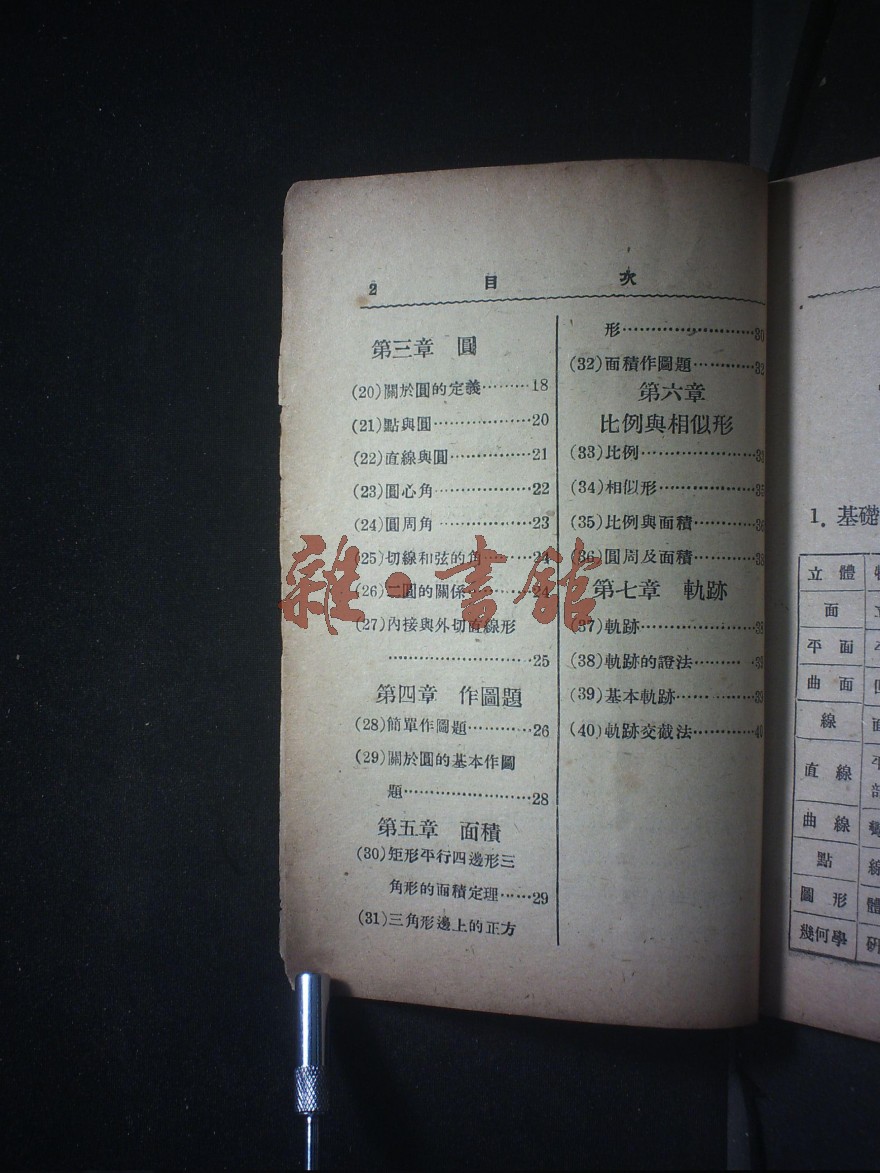 2 目 次
第三章 圓
(20)關於圓的定義………18
(21)點與圓………………20
(22)直線與圓……………21
(23)圓心角………………22
(24)圓周角………………23
(25)切線和弦的角………24
(26)二圓的關係…………24
(27)內接與外切直線形
……………………………25
第四章 作圖題
(28)簡單作圖題…………26
(29)關於圓的基本作圖
題……………………28
第五章 面積
(30)矩形平行四邊形三
角形的面積定理……29
(31)三角形邊上的正方
形……………………30
(32)面積作圖題…………32
第六章
比例與相似形
(33)比例…………………
(34)相似形………………35
(35)比例與面積…………36
(36)圓周及面積…………38
第七章 軌跡
(37)軌跡…………………38
(38)軌跡的證法…………
(39)基本軌跡……………39
(40)軌跡交截法…………40
雜·書館
1. 基礎
立體
面
平面
曲面
線
直線
曲線
點 線
圖形 體
幾何學 研